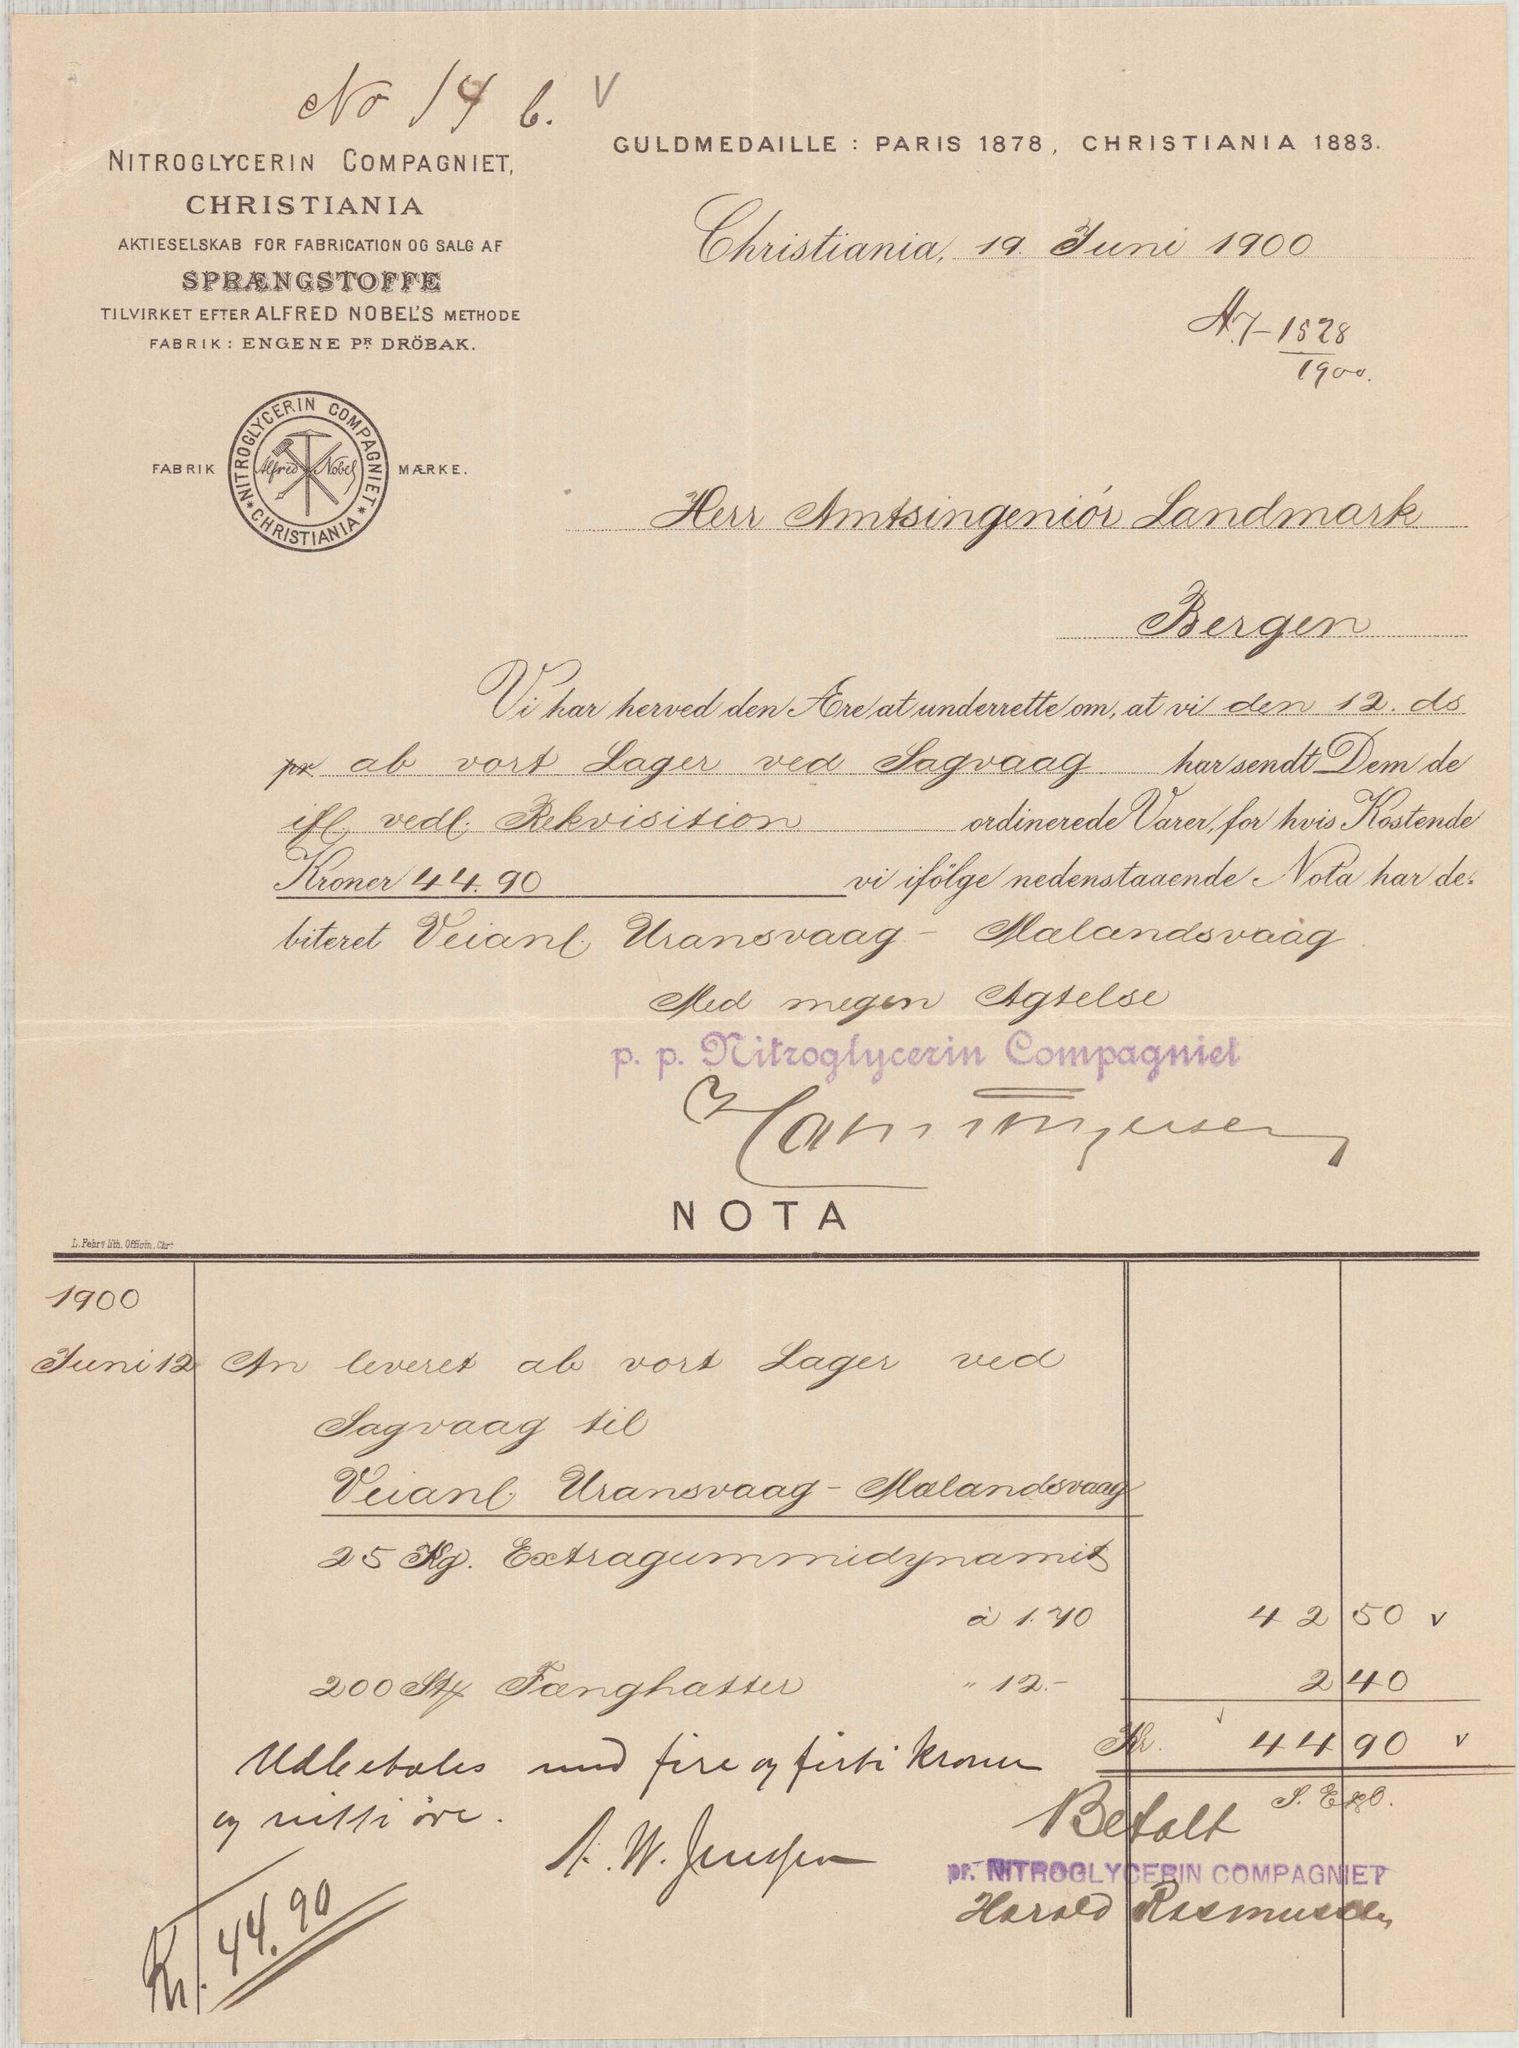 No 14 b. V
NITROGLYCERIN COMPAGNIET,
CHRISTIANIA
AKTIESELSKAB FOR FABRICATION OG SALG AF
SPRÆNGSTOFFE
TILVIRKET EFTER ALFRED NOBEL'S METHODE
FABRIK: ENGENE PR DRÖBAK.
FABRIK MÆRKE.
NITROGLYCERIN COMPAGNIET
CHRISTIANIA
Alfred Nobel
GULDMEDAILLE: PARIS 1878, CHRISTIANIA 1883.
Christiania, 19. Juni 1900
1528
1900.
Herr Amtsingeniör Landmark
Bergen
Vi har herved den Ære at underrette om, at vi den 12. ds
pr ab vort Lager ved Sagvaag har sendt Dem de
ifl. vedl. Rekvisition ordinerede Varer, for hvis Kostende
Kroner 44.90 vi ifölge nedenstaaende Nota har de-
biteret Veianl. Uransvaag - Mælandsvaag.
Med megen Agtelse
p. p. Nitroglycerin Compagniet
NOTA
L. Fehrs lith. Officin. Chra
1900
Juni 12 An leveret ab vort Lager ved
Sagvaag til
Veianl. Uransvaag - Mælandsvaag
25 Kg. Extragummidynamit
à 1.70 42 50 v
200 Stk Fænghatter " 12.- 2 40
Kr. 44 90 v
S. E. & O.
Udbetales med fire og firti kroner
og nitti öre.
A. W. Jenssen
Betalt
pr. NITROGLYCERIN COMPAGNIET
Harald Rasmussen
Kr. 44.90